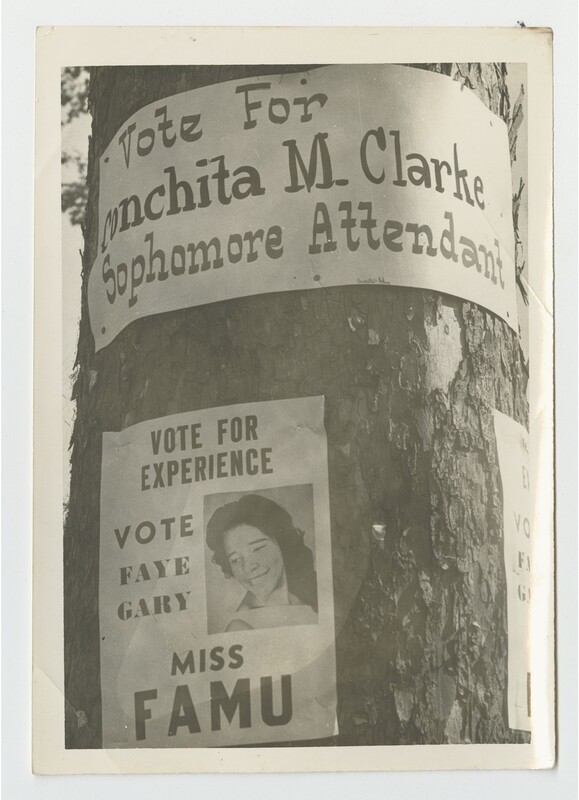 Vote For
Conchita M. Clarke
Sophomore Attendant
VOTE FOR
EXPERIENCE
VOTE
FAYE
GARY
MISS
FAMU
VO
FA
G